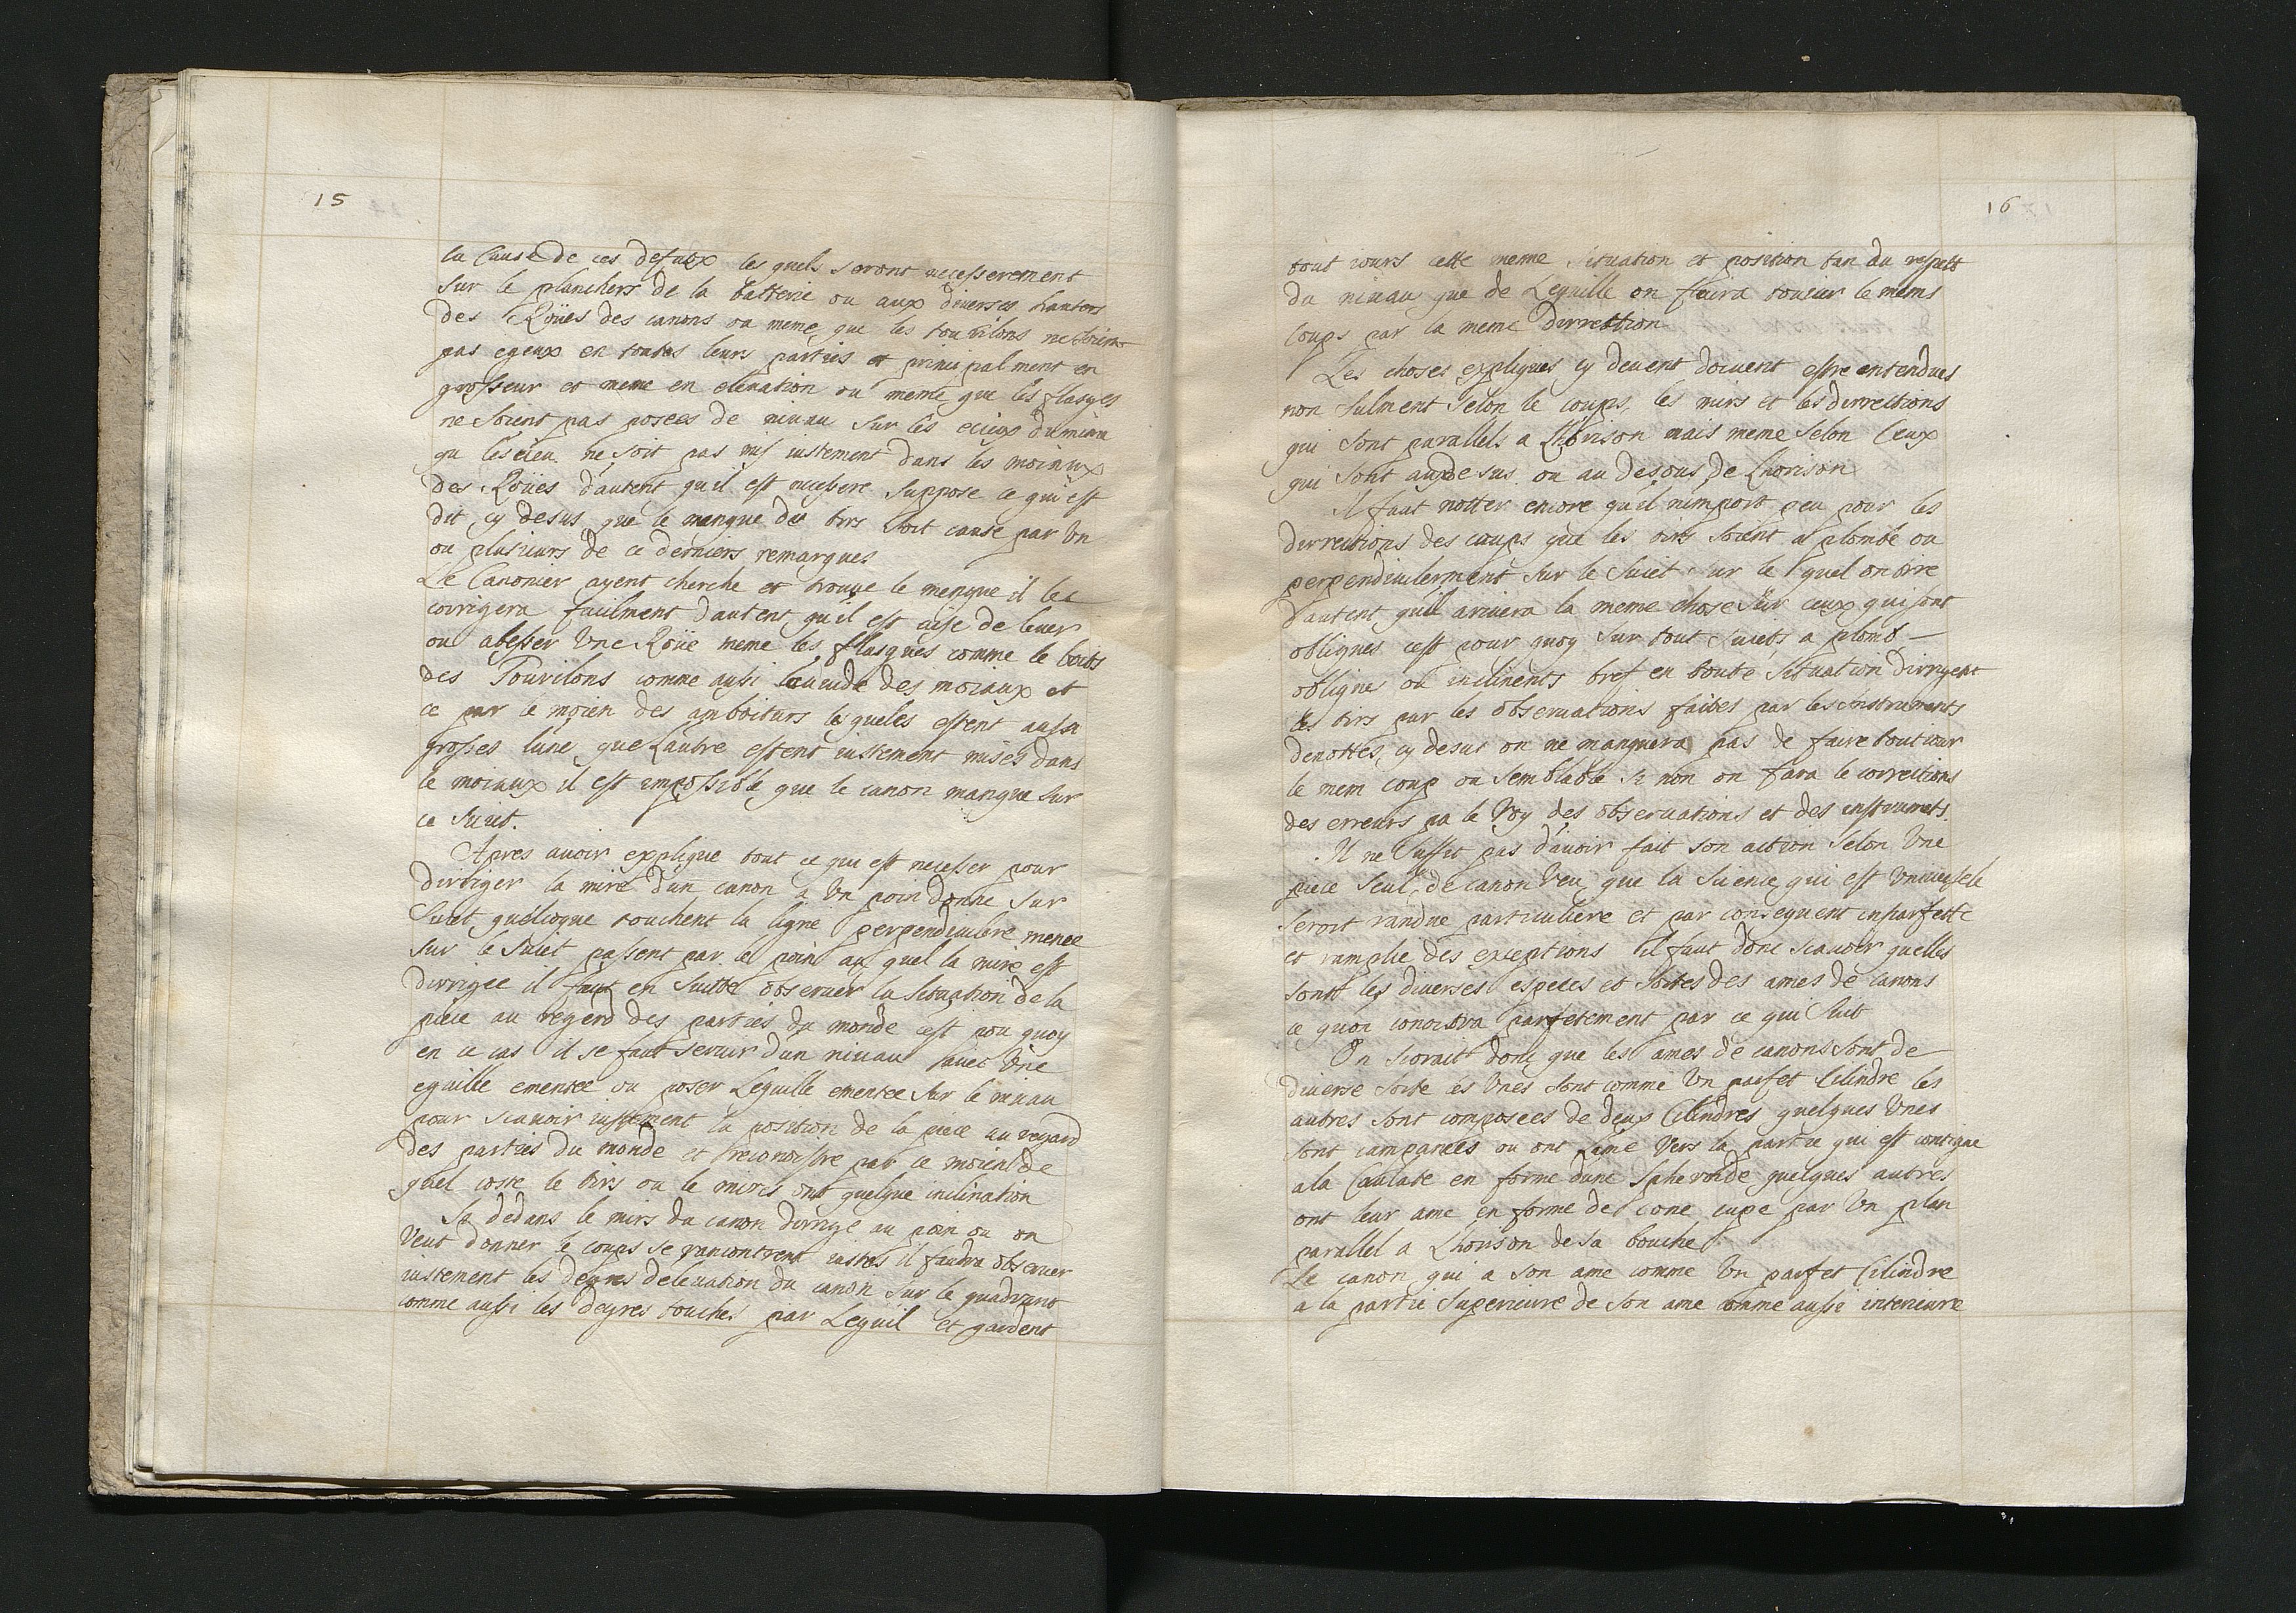 15
la Cause de ces defaux les quels seront necesserement
sur le planchers de la batterie ou aux diverses hautors
des Roües des canons ou meme que les tourilons ne soient
pas egeux en toutes leurs parties et principalment en
grosseur et meme en elevation ou meme que les flasges
ne soient pas posees de nivau sur les
qu lesieu ne soit pas mis iustement dans les moiaux
des Roües dautent qu il est necessere suppose ce qui est
dit cy desus que le manque de tirs soit cause par Un
ou plusieurs de ce derniers remarques
Le Canonier ayent cherche et trouve le menque il les
corrigera faiilment dautent qu il est aise de lever
ou abesser Une Roüe meme les flasques comme le bouts
des Tourilons comme ausi des moiaux et
ce par le moien des amboiturs lesqueles estent aussi
grosses lune que Lautre estent iustement mises dans
le moiaux il est impossible que le canon manque sur
ce suiet.
Apres avoir explique tout ce que est necesser pour
dirriger la mire d'un canon a Un poin donne sur
suiet quelcoque touchent la ligne perpendiculere menee
sur le suiet passent par le poin au quel la mire est
dirrigee il faut en suitte observer la situation de la
piece au regerd des parties du monde cest pou quoy
en ce cas il se faut servir d'un nivau avec Une
eguille ementee ou poser Leguille ementee sur le nivau
pour scavoir iustement la position de la piece au regard
des parties du monde et reconoistre par ce moien de
quel coste le tirs ou le mires ont quelque inclination
Si dedans le mirs du canon dirrige au poin ou on
Veut donner le coups se rancontrent iustes il faudra observer
iustement les degres delevation du canon sur le quadrant
comme aussi les degres touches par Leguil et gardent
16
tout iours cette meme situation et position tan du respett
du nivau que de Leguille on faira touiur le mems
coups par la meme dirrettion
Les choses expliques cy devent doivent estre entendues
non sulment selon le coups, les mirs et les dirrections
qui sont parallels a Lhorison mais meme selon ceux
qui sont aux desus ou au desous de Lhorison
Il faut notter encore qu il nimport peu pour les
dirrections des coups que les tirs soient a plombe ou
perpendiculerment sur le suiet sur le quel on tire
d'autent quil arrivera la meme chose sur ceux qui sont
obliques cest pour quoy sur tout suiets a plomb
obliques ou inclinents bref en toute situation dirrigent
les tirs par les observations faites par les instruments
denottes, cy desus on ne manquera pas de faire tout iour
le mem coup ou semblable si non on fara le corrections
des erreurs pa le Voy des observations et des instrumets.
Il ne suffit pas d'avoir fait son action selon Une
piece seule de canon Veu que la sience qui est Universele
seroit randue particuliere et par consequent inparfette
et ramplie des exceptions il faut donc scavoir quelles
sont les diverses especes et sortes des ames de canons
ce quon conoistra parfetement par ce qui suit
On scorait donc que les ames de canons sont de
diverse sorte les Unes sont comme Un parfet Cilindre les
autres sont composees de deux Cilindres quelques Unes
sont campanees ou ont lame Vers la partie qui est contigue
a la Caulate en forme dune Spheroide quelques autres
ont leur ame en forme de cone cupe par Un plan
parallel a Lhorison de sa bouche.
Le canon qui a son ame comme Un parfet Cilindre
a la partie superieure de son ame comme aussi interieure